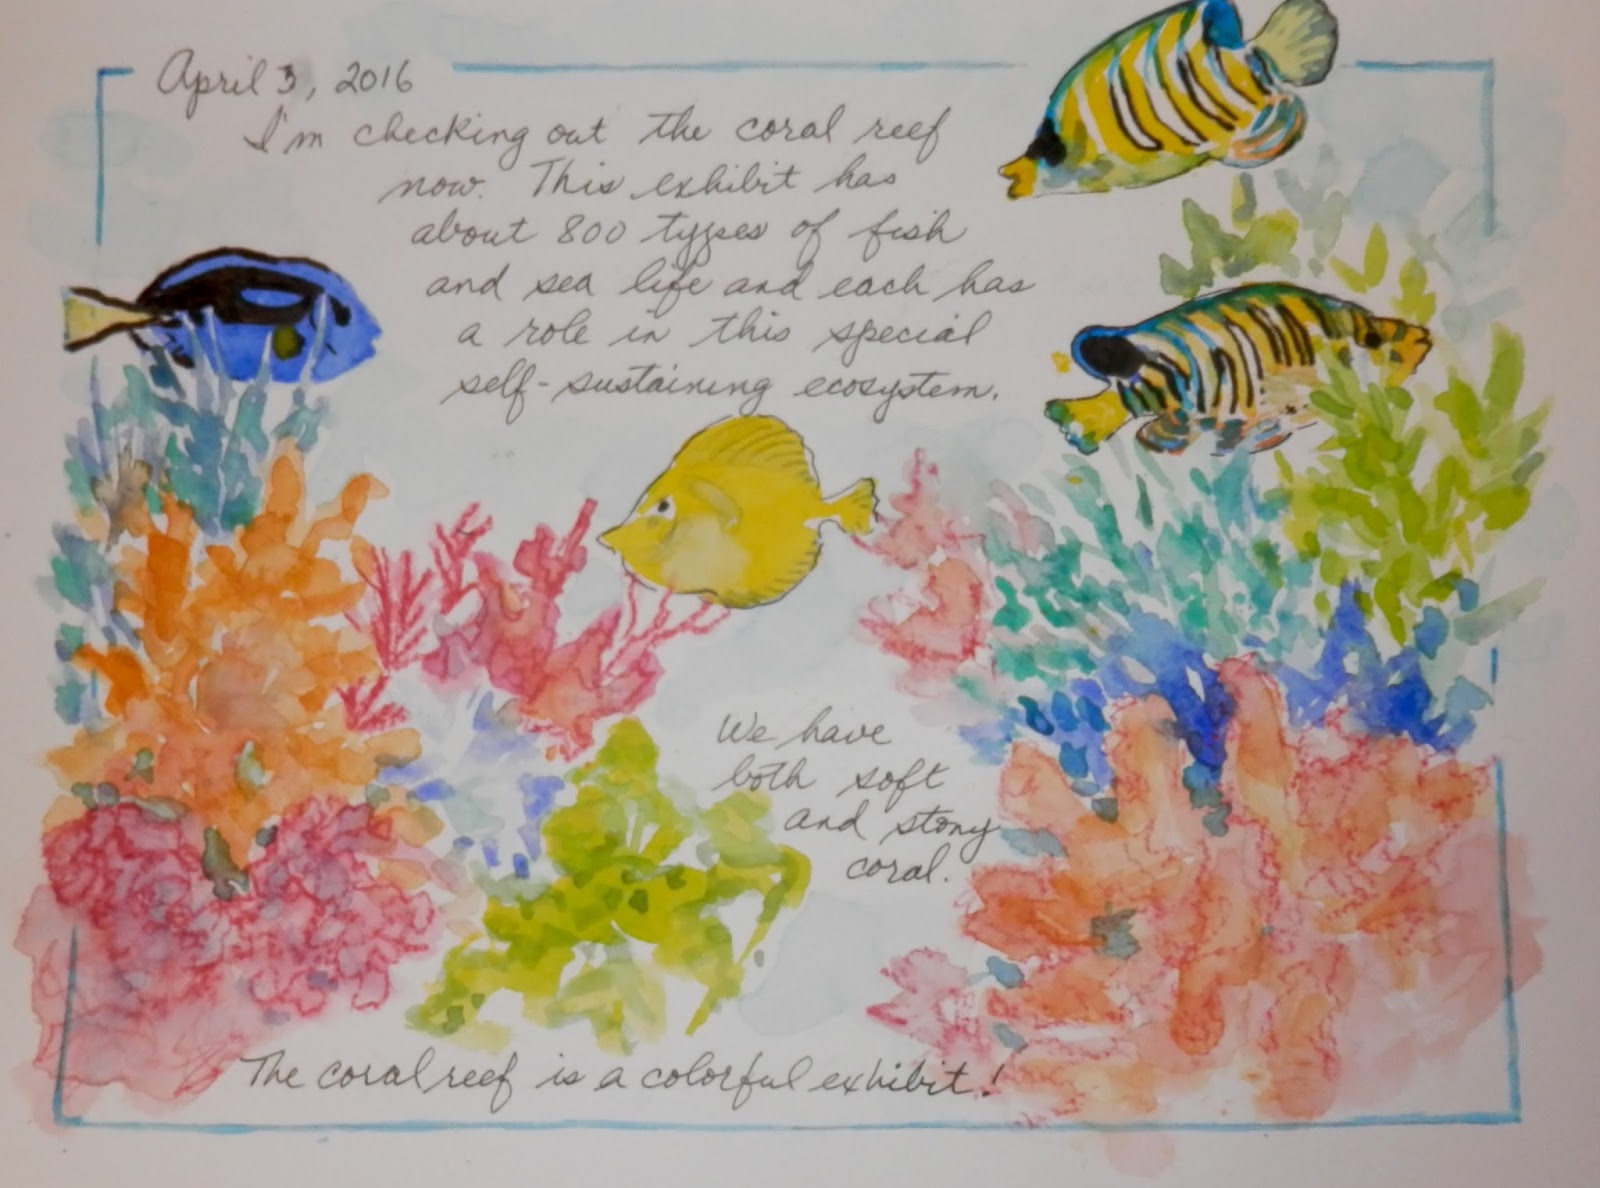 April 3, 2016
I'm checking out the coral reef
now. This exhibit has
about 800 types of fish
and sea life and each has
a role in this special
self-sustaining ecosystem.
We have
both soft
and stony
coral.
The coral reef is a colorful exhibit!